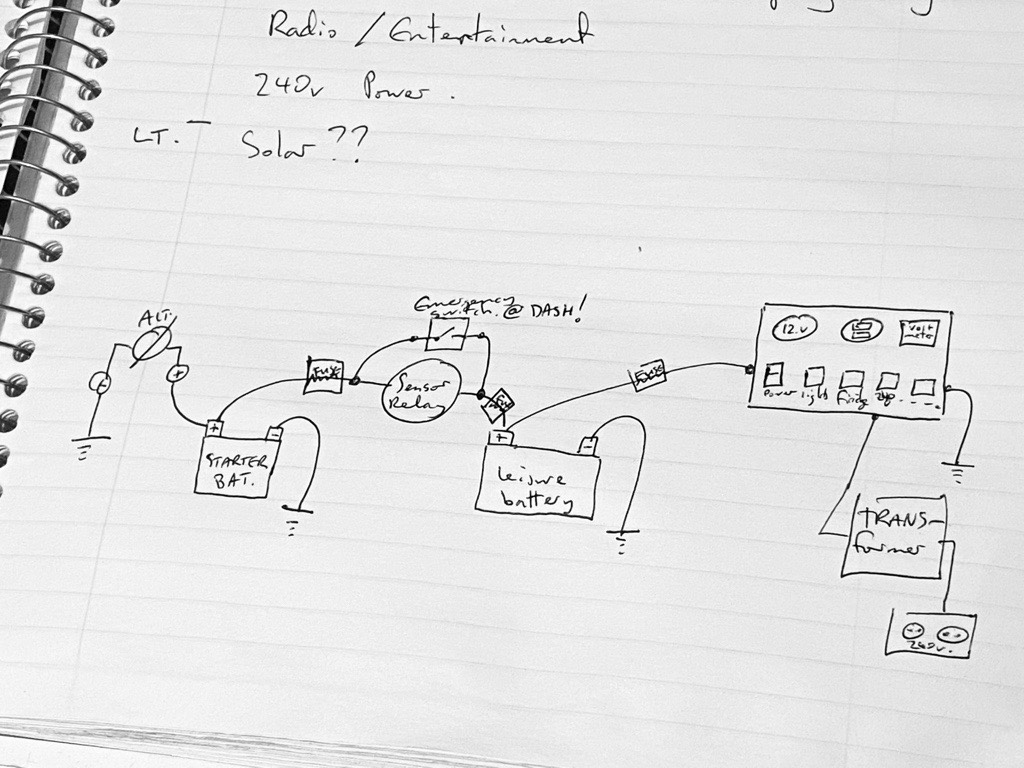 Radio / Entertainment
240v Power.
LT. - Solar ??
Emergency
switch. @ DASH!
ALT.
Fuse
Sensor
Relay
Fuse
12.v
Volt
meter
Power lights Fridge
+
-
STARTER
BAT.
+
-
Leisure
battery
TRANS-
former
240v.